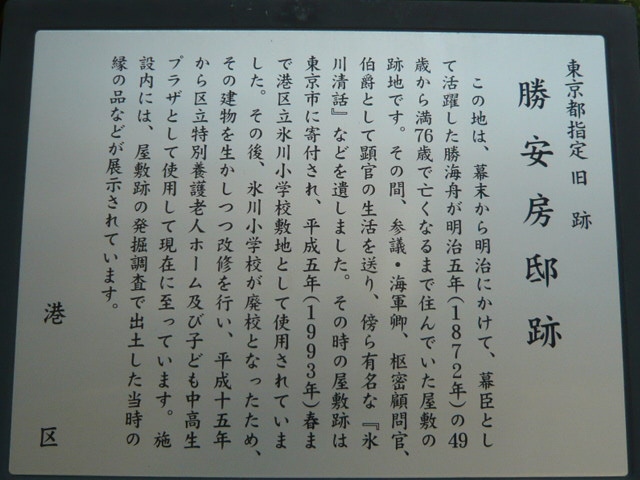 東京都指定旧跡
勝安房邸跡
この地は、幕末から明治にかけて、幕臣とし
て活躍した勝海舟が明治五年(1872年)の49
歳から満76歳で亡くなるまで住んでいた屋敷の
跡地です。その間、参議・海軍卿、枢密顧問官、
伯爵として顕官の生活を送り、傍ら有名な『氷
川清話』などを遺しました。その時の屋敷跡は
東京市に寄付され、平成五年(1993年)春ま
で港区立氷川小学校敷地として使用されていま
した。その後、氷川小学校が廃校となったため、
その建物を生かしつつ改修を行い、平成十五年
から区立特別養護老人ホーム及び子ども中高生
プラザとして使用して現在に至っています。施
設内には、屋敷跡の発掘調査で出土した当時の
縁の品などが展示されています。
港区